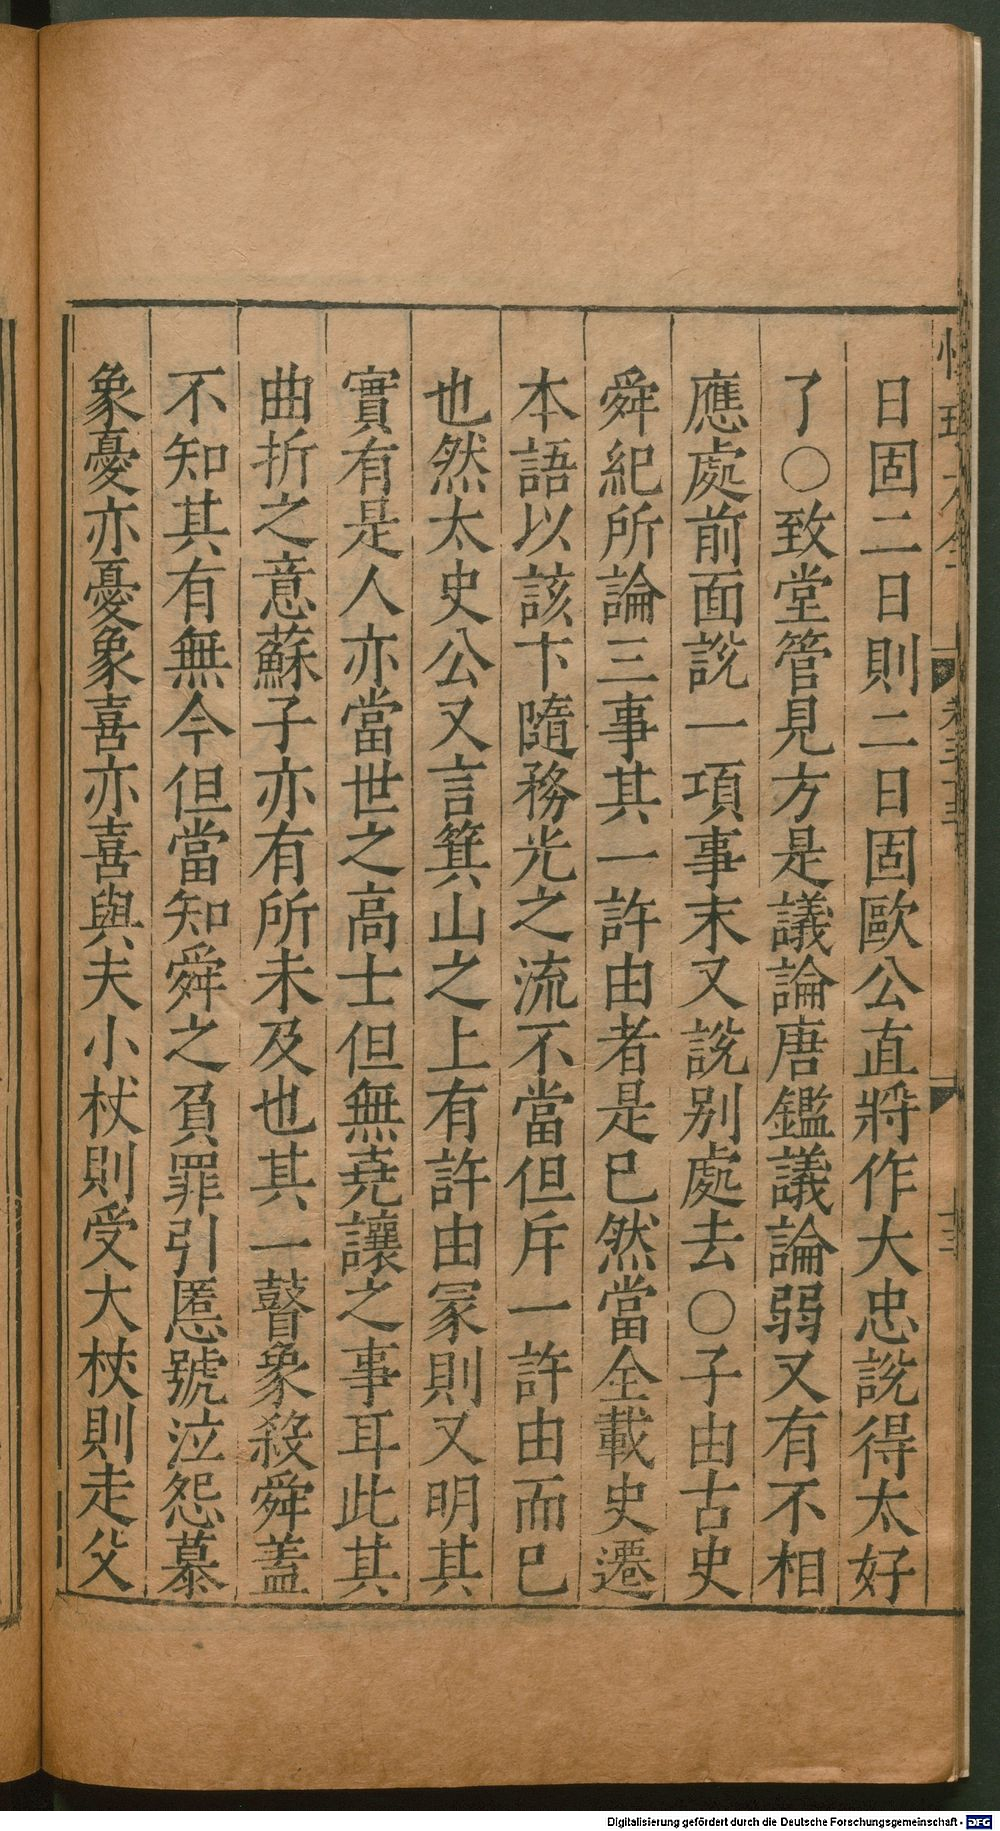 日固二日則二日固歐公直將作大忠說得太好
了○致堂管見方是議論唐鑑議論弱又有不相
應處前面說一項事末又說別處去○子由古史
舜紀所論三事其一許由者是已然當全載史遷
本語以該卞隨務光之流不當但斥一許由而已
也然太史公又言箕山之上有許由冢則又明其
實有是人亦當世之高士但無堯讓之事耳此其
曲折之意蘇子亦有所未及也其一瞽象殺舜蓋
不知其有無今但當知舜之負罪引慝號泣怨慕
象憂亦憂象喜亦喜與夫小杖則受大杖則走父
Digitalisierung gefördert durch die Deutsche Forschungsgemeinschaft - DFG